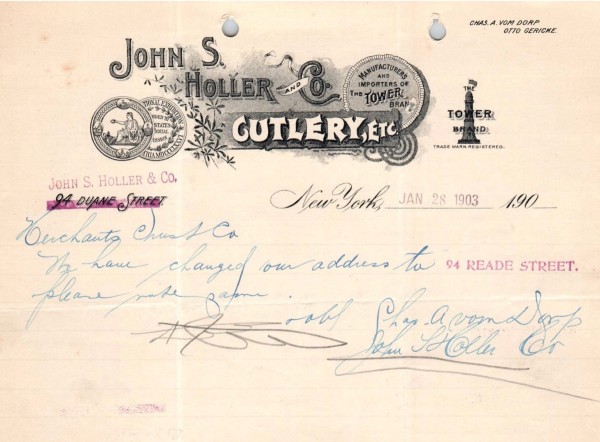 CHAS. A. VOM DORP
OTTO GERICKE.
JOHN S.
HOLLER AND CO.
MANUFACTURERS
AND
IMPORTERS OF
THE TOWER
BRAND
CUTLERY, ETC.
THE
TOWER
BRAND.
TRADE MARK REGISTERED.
JOHN S. HOLLER & CO.
94 DUANE STREET
New York, JAN 28 1903 190
Merchants Trust Co
We have changed our address to 94 READE STREET.
please note same.
Chas. A vom Dorp
John S Holler Co